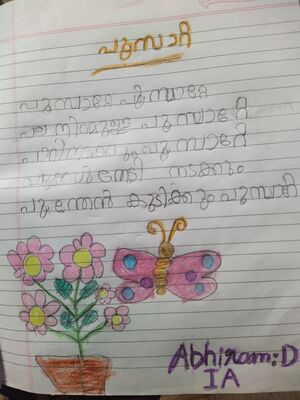 പൂമ്പാറ്റ
പൂമ്പാറ്റേ പൂമ്പാറ്റേ
പല നിറമുള്ള പൂമ്പാറ്റേ
പൂമ്പാറ്റേ
തേടി നടക്കും
പൂന്തേൻ കുടിക്കും പൂമ്പാറ്റ
Abhiram:D
IA